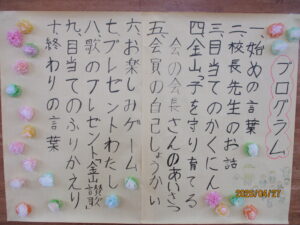 プログラム
一、始めの言葉
二、校長先生のお話
三、目当てのかくにん
四、金山っ子を守り育てる
会の会長さんのあいさつ
五、会員の自己しょうかい
六、お楽しみゲーム
七、プレゼントわたし
八、歌のプレゼント「金山讃歌」
九、目当てのふりかえり
十、終わりの言葉